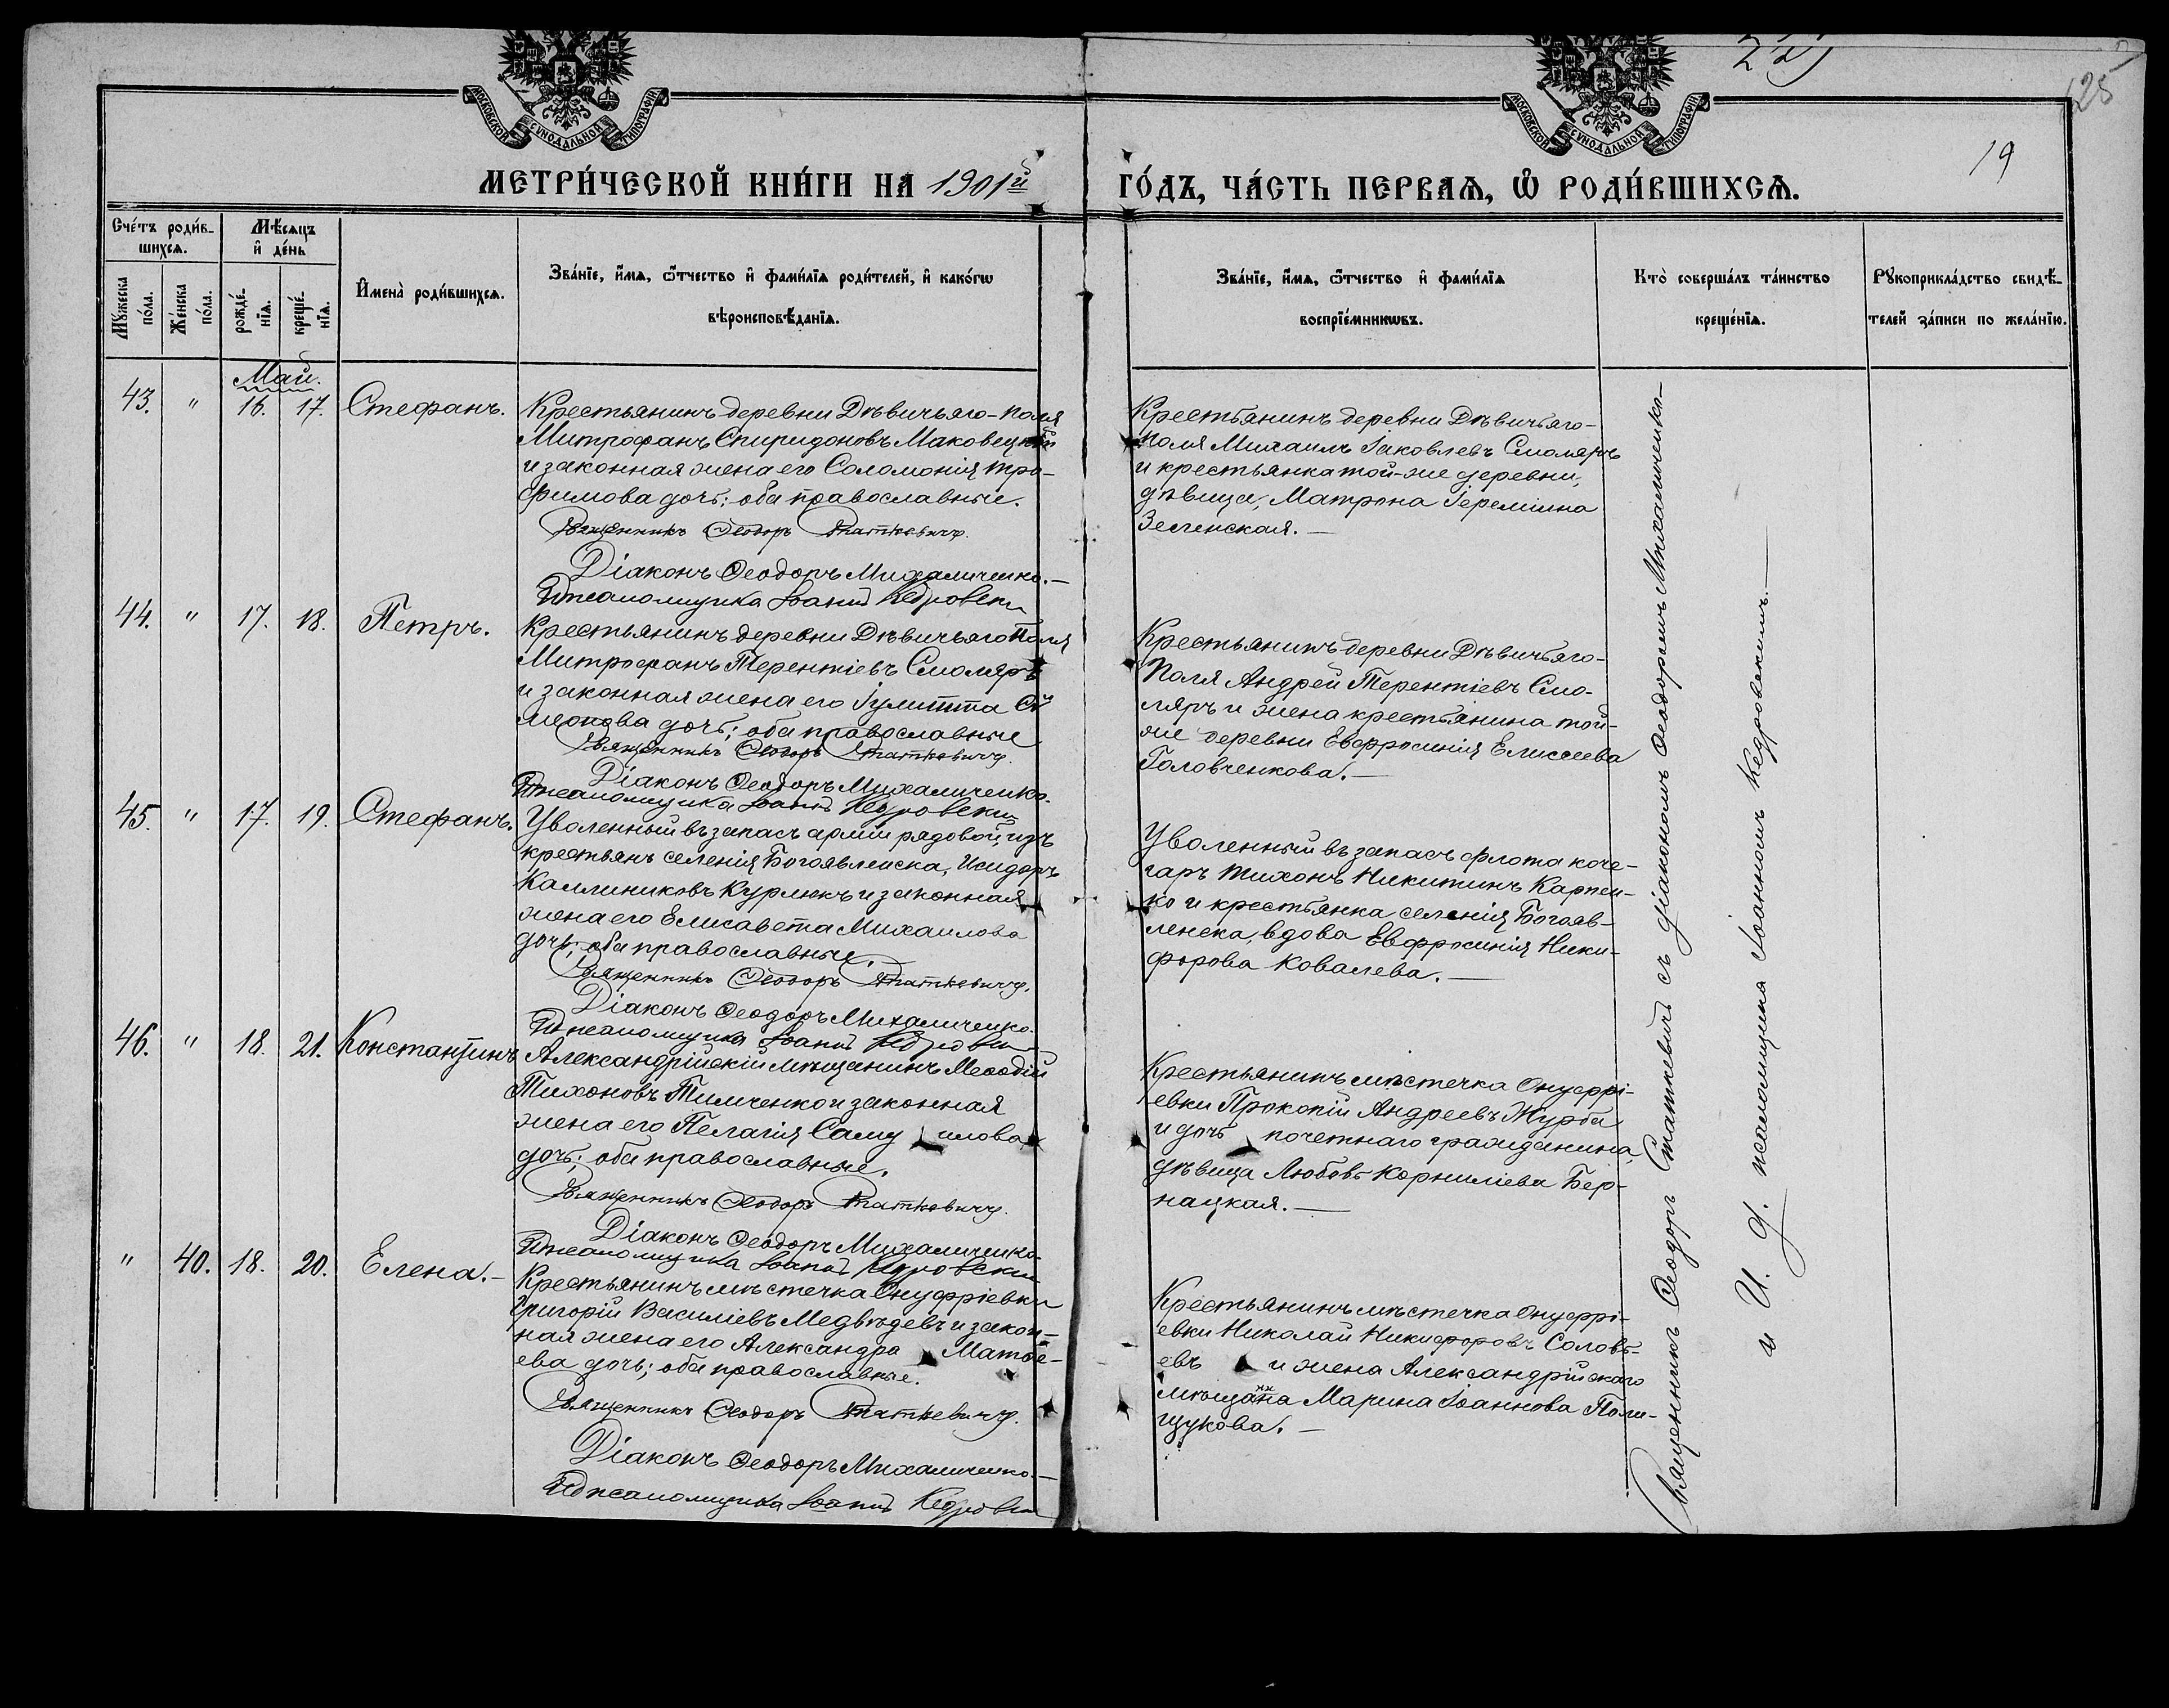 МОСКОВСКОЙ СѴНОДАЛЬНОЙ ТИПОГРАФІИ
МОСКОВСКОЙ СѴНОДАЛЬНОЙ ТИПОГРАФІИ
625
19
МЕТРИ́ЧЕСКОЙ КНИ́ГИ НА 1901й
ГО́ДЪ, ЧА́СТЬ ПЕРВАѦ, Ѡ҆ РОДИ́ВШИХСѦ.
Сче́тъ роди́в-
шихсѧ.
Мѣ́сѧцъ
и҆ де́нь
Мꙋ́жеска
по́ла.
Же́нска
по́ла.
рожде́-
нїѧ.
креще́-
нїѧ.
И҆мена̀ роди́вшихсѧ.
Зва́нїе, и҆́мѧ, ѻ҆́тчество и҆ фами́лїѧ роди́телей, и҆ како́гѡ
вѣроисповѣ́данїѧ.
Зва́нїе, и҆́мѧ, ѻ҆́тчество и҆ фами́лїѧ
воспрїе́мникѡвъ.
Кто̀ соверша́лъ та́инство
креще́нїѧ.
Рꙋкоприкла́дство свидѣ́-
телей за́писи по жела́нїю.
Май.
43. " 16. 17. Стефанъ.
Крестьянинъ деревни Дѣвичьяго-поля
Митрофанъ Спиридоновъ Маковецкій
и законная жена его Соломонія Тро-
фимова дочь; оба православные.
Священникъ Ѳеодоръ Статкевичъ.
Діаконъ Ѳеодоръ Михаличенко.—
Ид псаломщика Іоаннъ Кедровскій
Крестьянинъ деревни Дѣвичьяго-
поля Михаилъ Іаковлевъ Смоляръ
и крестьянка той-же деревни,
дѣвица, Матрона Іереміина
Зеленская.—
44. " 17. 18. Петръ.
Крестьянинъ деревни Дѣвичьяго Поля
Митрофанъ Терентіевъ Смоляръ
и законная жена его Іулитта Си
меонова дочь; оба православные
Священникъ Ѳеодоръ Статкевичъ.
Діаконъ Ѳеодоръ Михаличенко.
Ид псаломщика Іоаннъ Кедровскій
Крестьянинъ деревни Дѣвичьяго-
Поля Андрей Терентіевъ Смо-
ляръ и жена крестьянина той-
же деревни Евфросинія Елисеева
Головченкова.—
45. " 17. 19. Стефанъ.
Уволенный въ запасъ арміи рядовой, изъ
крестьянъ селенія Богоявленска, Исидоръ
Каллиниковъ Курлюкъ и законная
жена его Елисавета Михаилова
дочь; оба православные.
Священникъ Ѳеодоръ Статкевичъ.
Діаконъ Ѳеодоръ Михаличенко.
Ид псаломщика Іоаннъ Кедровскій
Уволенный въ запасъ флота коче-
гаръ Тихонъ Никитинъ Карпен-
ко и крестьянка селенія Богояв-
ленска, вдова Евфросинія Ники-
форова Ковалева.—
46. " 18. 21. Константинъ
Александрійскій мѣщанинъ Меѳодій
Тихоновъ Тимченко и законная
жена его Пелагія Саму илова
дочь; оба православные.
Священникъ Ѳеодоръ Статкевичъ.
Діаконъ Ѳеодоръ Михаличенко
Ид псаломщика Іоаннъ Кедровскій
Крестьянинъ мѣстечка Онуфрі-
евки Прокопій Андреевъ Журба
и дочь почетнаго гражданина,
дѣвица Любовь Корниліева Бер-
нацкая.—
" 40. 18. 20. Елена.—
Крестьянинъ мѣстечка Онуфріевки
Григорій Василіевъ Медвѣдевъ и закон-
ная жена его Александра Матѳе-
ева дочь; оба православные.
Священникъ Ѳеодоръ Статкевичъ.
Діаконъ Ѳеодоръ Михаличенко.—
Ид псаломщика Іоаннъ Кедровскій
Крестьянинъ мѣстечка Онуфрі-
евки Николай Никифоровъ Соловь-
евъ и жена Александрійскаго
мѣщанина Марина Іоаннова Поли-
щукова.—
Священникъ Ѳеодоръ Статкевичъ съ діакономъ Ѳеодоромъ Михаличенко—
и И. д. псаломщика Іоанномъ Кедровскимъ.—